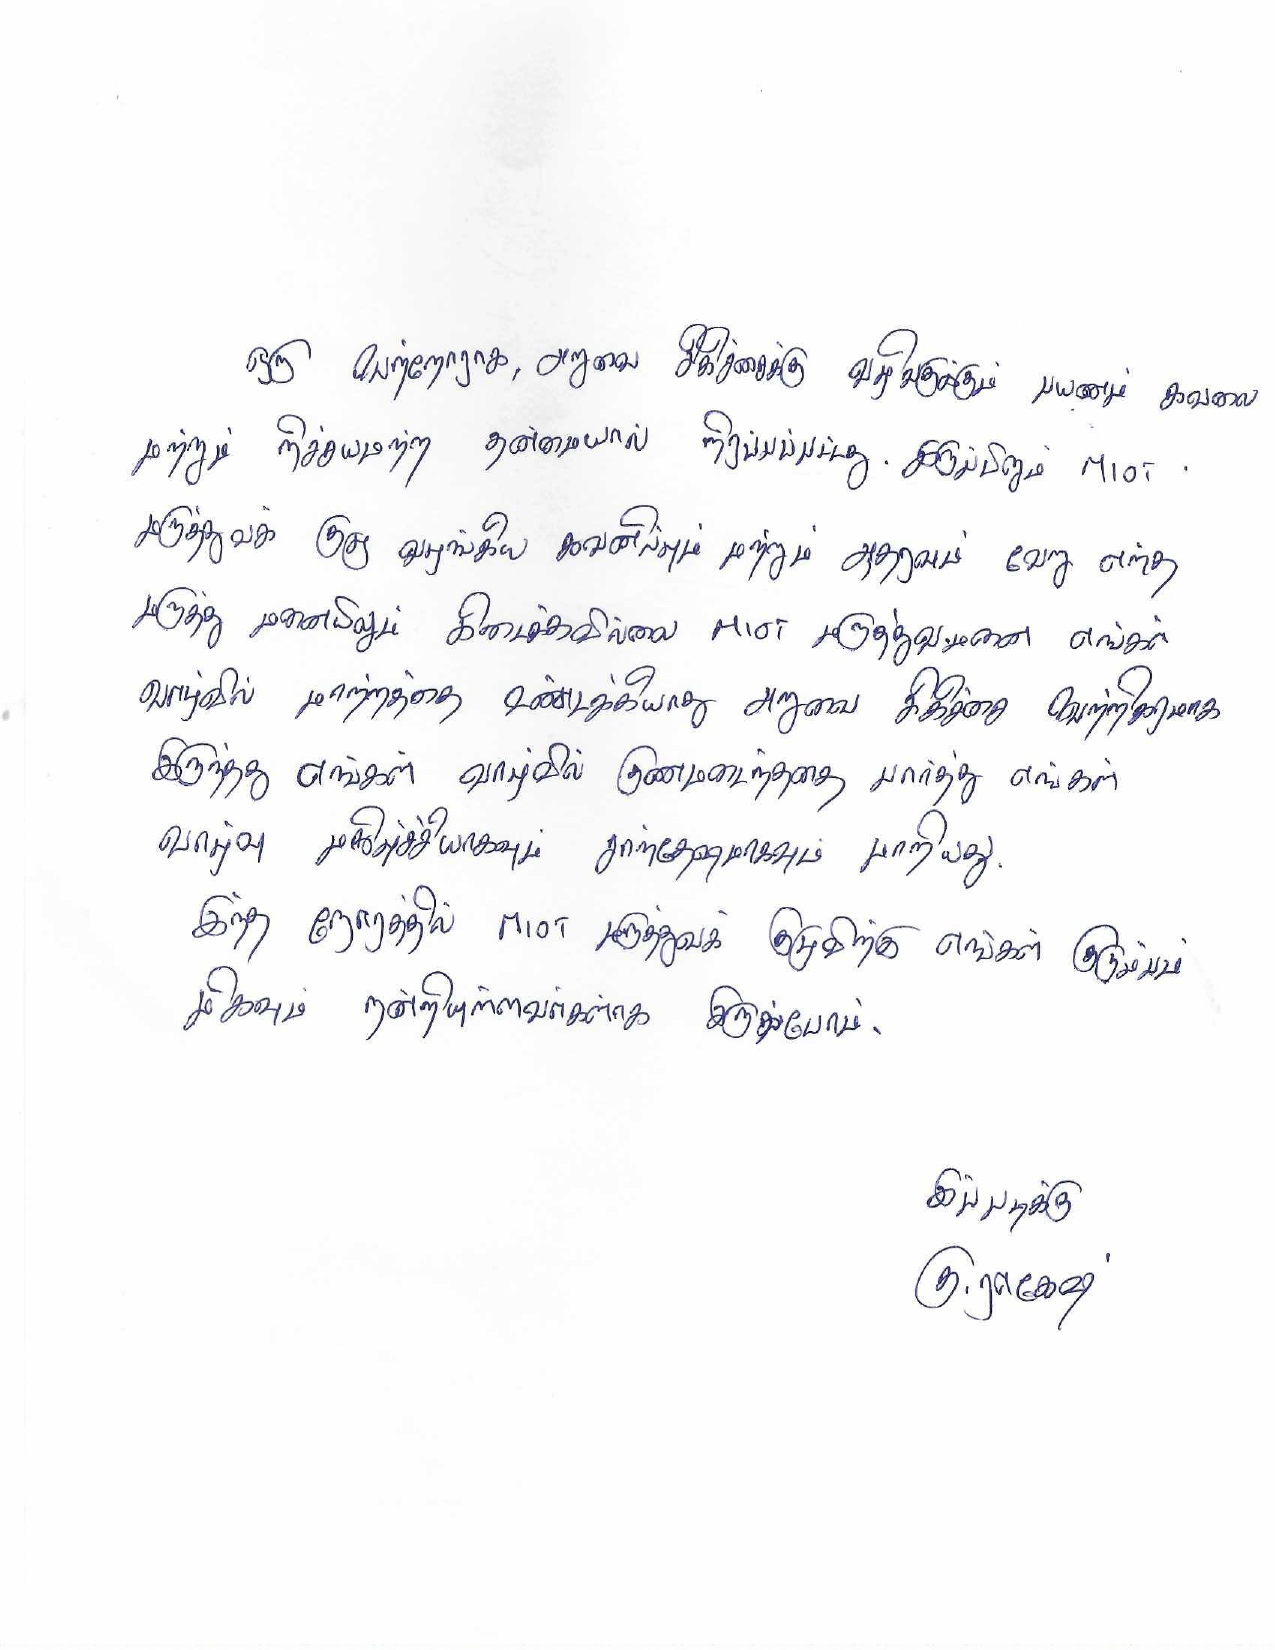 ஒரு பெற்றோராக, அறுவை சிகிச்சைக்கு வழிவகுக்கும் பயணம் கவலை
மற்றும் நிச்சயமற்ற தன்மையால் நிரப்பப்பட்டது. இருப்பினும் MIOT.
மருத்துவக் குழு வழங்கிய கவனிப்பும் மற்றும் ஆதரவும் வேறு எந்த
மருத்து மனையிலும் கிடைக்கவில்லை MIOT மருத்துவமனை எங்கள்
வாழ்வில் மாற்றத்தை உண்டாக்கியாது அறுவை சிகிச்சை வெற்றிகரமாக
இருந்தது எங்கள் வாழ்வில் குணமடைந்ததை பார்த்து எங்கள்
வாழ்வு மகிழ்ச்சியாகவும் சந்தோஷமாகவும் மாறியது.
இந்த நேரத்தில் MIOT மருத்துவக் குழுவிற்கு எங்கள் குடும்பம்
மிகவும் நன்றியுள்ளவர்களாக இருப்போம்.
இப்படிக்கு
கு.ராகேஷ்